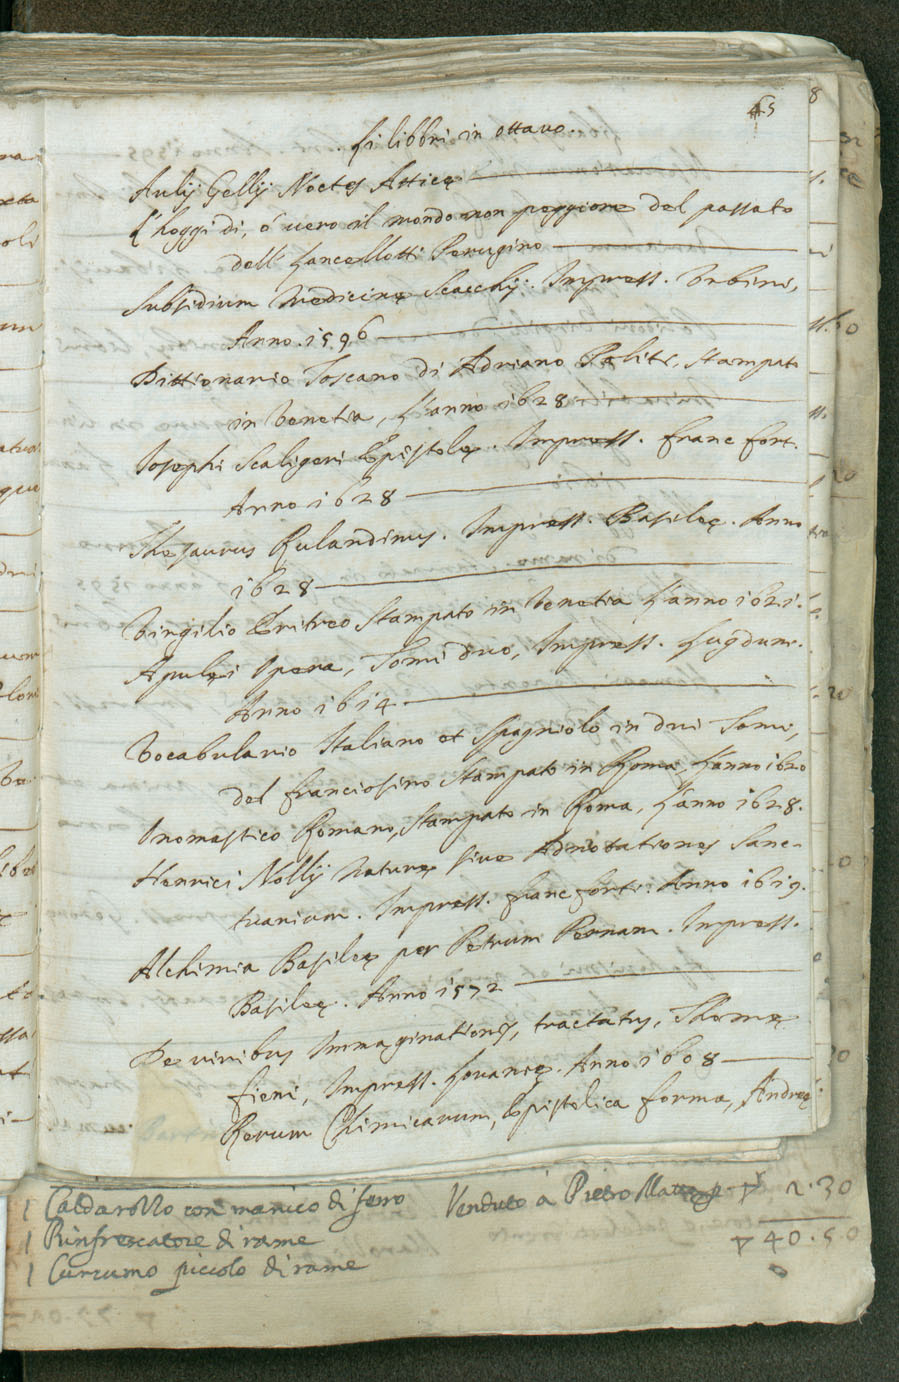 45
8
Li libbri in ottavo.
Aulij Gellij Noctes Atticę
L'hoggi di, ó vero il mondo non peggiore del passato
dell' Lancellotti Perugino
Subsidium Medicinę Scacchij. Impress. Urbini,
Anno. 1596
Dittionario Toscano di Adriano Politi, stampato
in Venetia, l'anno 1628
Josephi Scaligeri Epistolę. Impress. francfort.
Anno 1628
Thesaurus Rulandinus. Impress. Basileę. Anno
1628
Virgilio Eritreo stampato in Venetia l'anno 1621.
Apulęi Opera, Tomi duo, Impress. Lugduni.
Anno 1614
Vocabulario Italiano et Spagniolo in dui Tomi,
del franciosino stampato in Roma, l'anno 1620
Onomastico Romano, stampato in Roma, l'anno 1628.
Henrici Nollij Naturę sive Adnotationes Sanc-
tuarium. Impress. francforti. Anno 1619.
Alchimia Basileę per Petrum Pernam. Impress.
Basileę. Anno 1572
De viribus Immaginationis, tractatus, Thomę
fieni, Impress. Lovanię. Anno 1608
Rerum Chimicarum, Epistolica forma, Andreę
1 Caldarozzo con manico di ferro
Venduto á Pietro 2.30
1 Rinfrescatore di rame
40.50
1 Cuccumo piccolo di rame